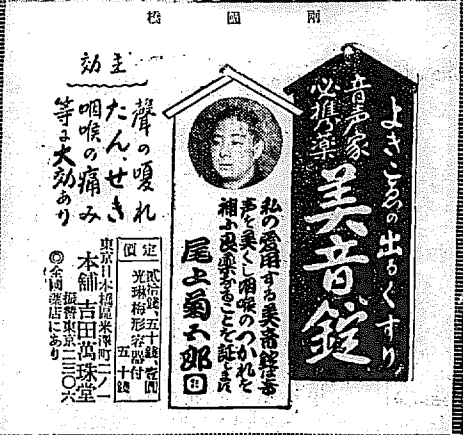 兩國橋
よきこゑの出るくすり
音声家
必携乃薬
美音錠
私の愛用する美音錠は
声を美くし咽喉のつかれを
補ふ良薬なることを証します
尾上菊五郎
主効
聲の嗄れ
たん、せき
咽喉の痛み
等に大効あり
定價
貳拾錢、五十錢、壹圓
光琳梅形容器付
五十錢
東京日本橋區米澤町二ノ一
本舗 吉田萬珠堂
振替東京二三〇六
◎全國藥店にあり